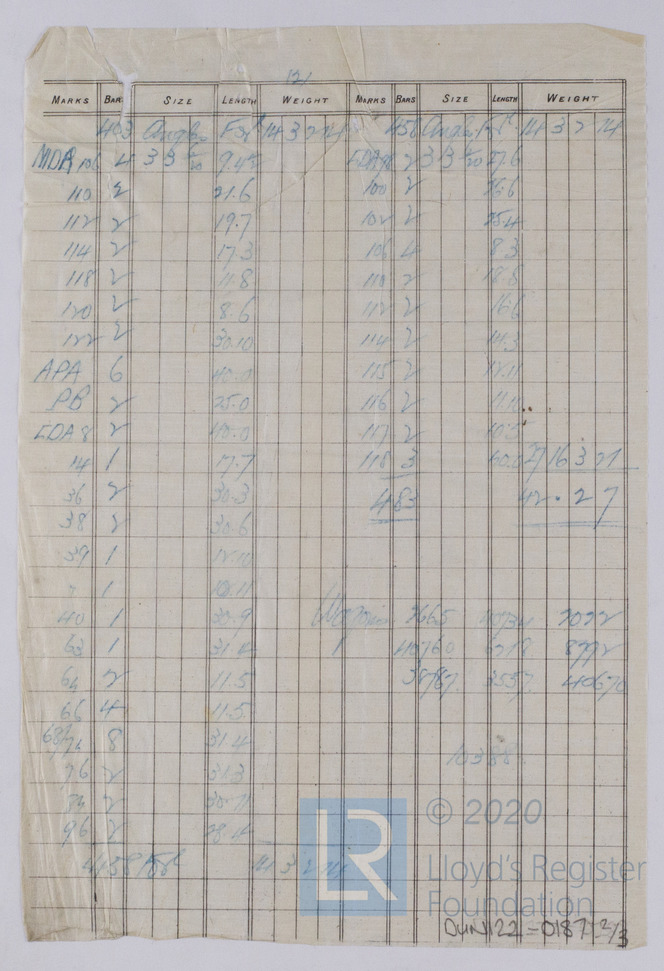 121
MARKS BARS SIZE LENGTH WEIGHT MARKS BARS SIZE LENGTH WEIGHT
403 Angles Ford 14 3 2 14 458 Angles Ford 14 3 2 14
MDA 106 4 3 3 9.4 EDA 98 2 3 3 27.6
110 2 21.6 100 2 26.6
112 2 19.7 102 2 25.4
114 2 17.3 106 4 8.3
118 2 11.8 110 2 18.8
120 2 8.6 112 2 16.6
122 2 30.10 114 2 14.3
APA 6 40.0 115 2 12.11
PB 2 25.0 116 2 11.10
EDA 8 2 40.0 117 2 10.5
14 1 17.7 118 3 60.0 27 16 3 21
36 2 30.3 483 42 . 2 7
38 2 30.6
39 1 12.10
1
40 1 30.9 2665 2022
63 1 31.4 40760 6218 8792
64 2 11.5 38787 3557 40670
66 4 11.5
68 8 31.4 10388
76 2 31.3
2
96 2 28.4
458 Ford 14 3 2 14
LR
© 2020
Lloyd's Register
Foundation
DUN122-0187-2/3